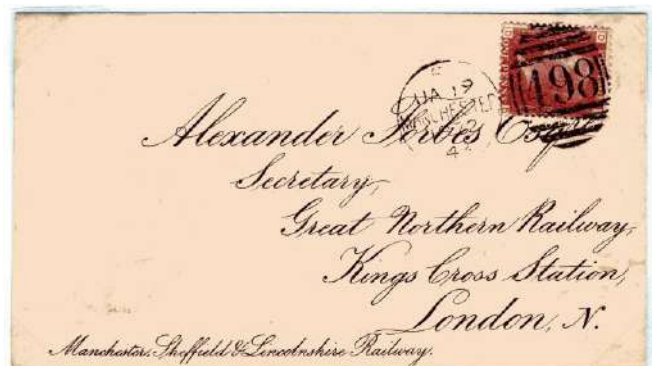 JA 19
MANCHESTER
498
Alexander Forbes Esqre
Secretary,
Great Northern Railway,
Kings Cross Station,
London, N.
Manchester, Sheffield & Lincolnshire Railway.